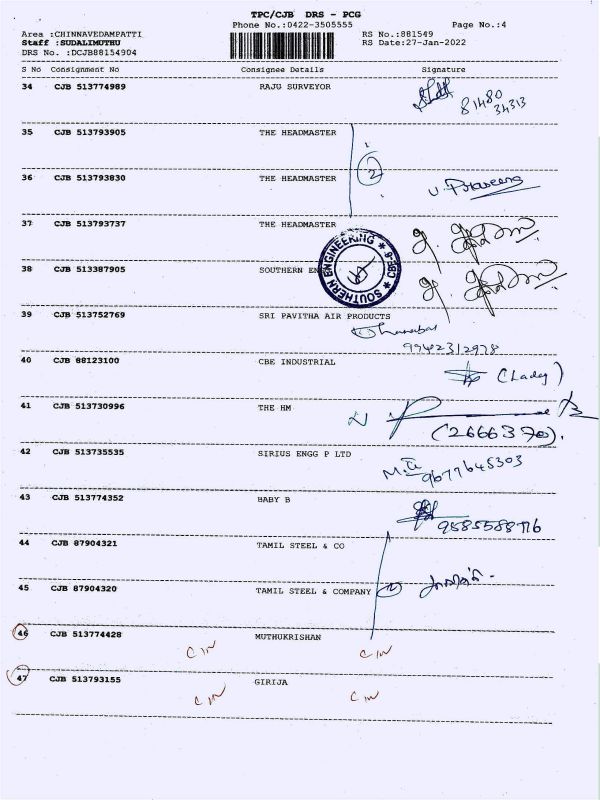 TPC/CJB DRS - PCG
Phone No.:0422-3505555 Page No.:4
Area :CHINNAVEDAMPATTI RS No.:881549
Staff :SUDALIMUTHU RS Date:27-Jan-2022
DRS No. :DCJB88154904
S No Consignment No Consignee Details Signature
34 CJB 513774989 RAJG SURVEYOR
81480
34313
35 CJB 513793905 THE HEADMASTER
2
36 CJB 513793830 THE HEADMASTER
37 CJB 513793737 THE HEADMASTER
SOUTHERN ENGINEERING * CBE-6 *
38 CJB 513387905 SOUTHERN EN
39 CJB 513752769 SRI PAVITHA AIR PRODUCTS
9942312978
40 CJB 88123100 CBE INDUSTRIAL
(Lady)
41 CJB 513730996 THE HM
(2666370).
42 CJB 513735535 SIRIUS ENGG P LTD
9677645303
43 CJB 513774352 BABY B
44 CJB 87904321 TAMIL STEEL & CO
45 CJB 87904320 TAMIL STEEL & COMPANY 2
46 CJB 513774428 MUTHUKRISHAN
CIN CIN
47 CJB 513793155 GIRIJA
CIN CIN